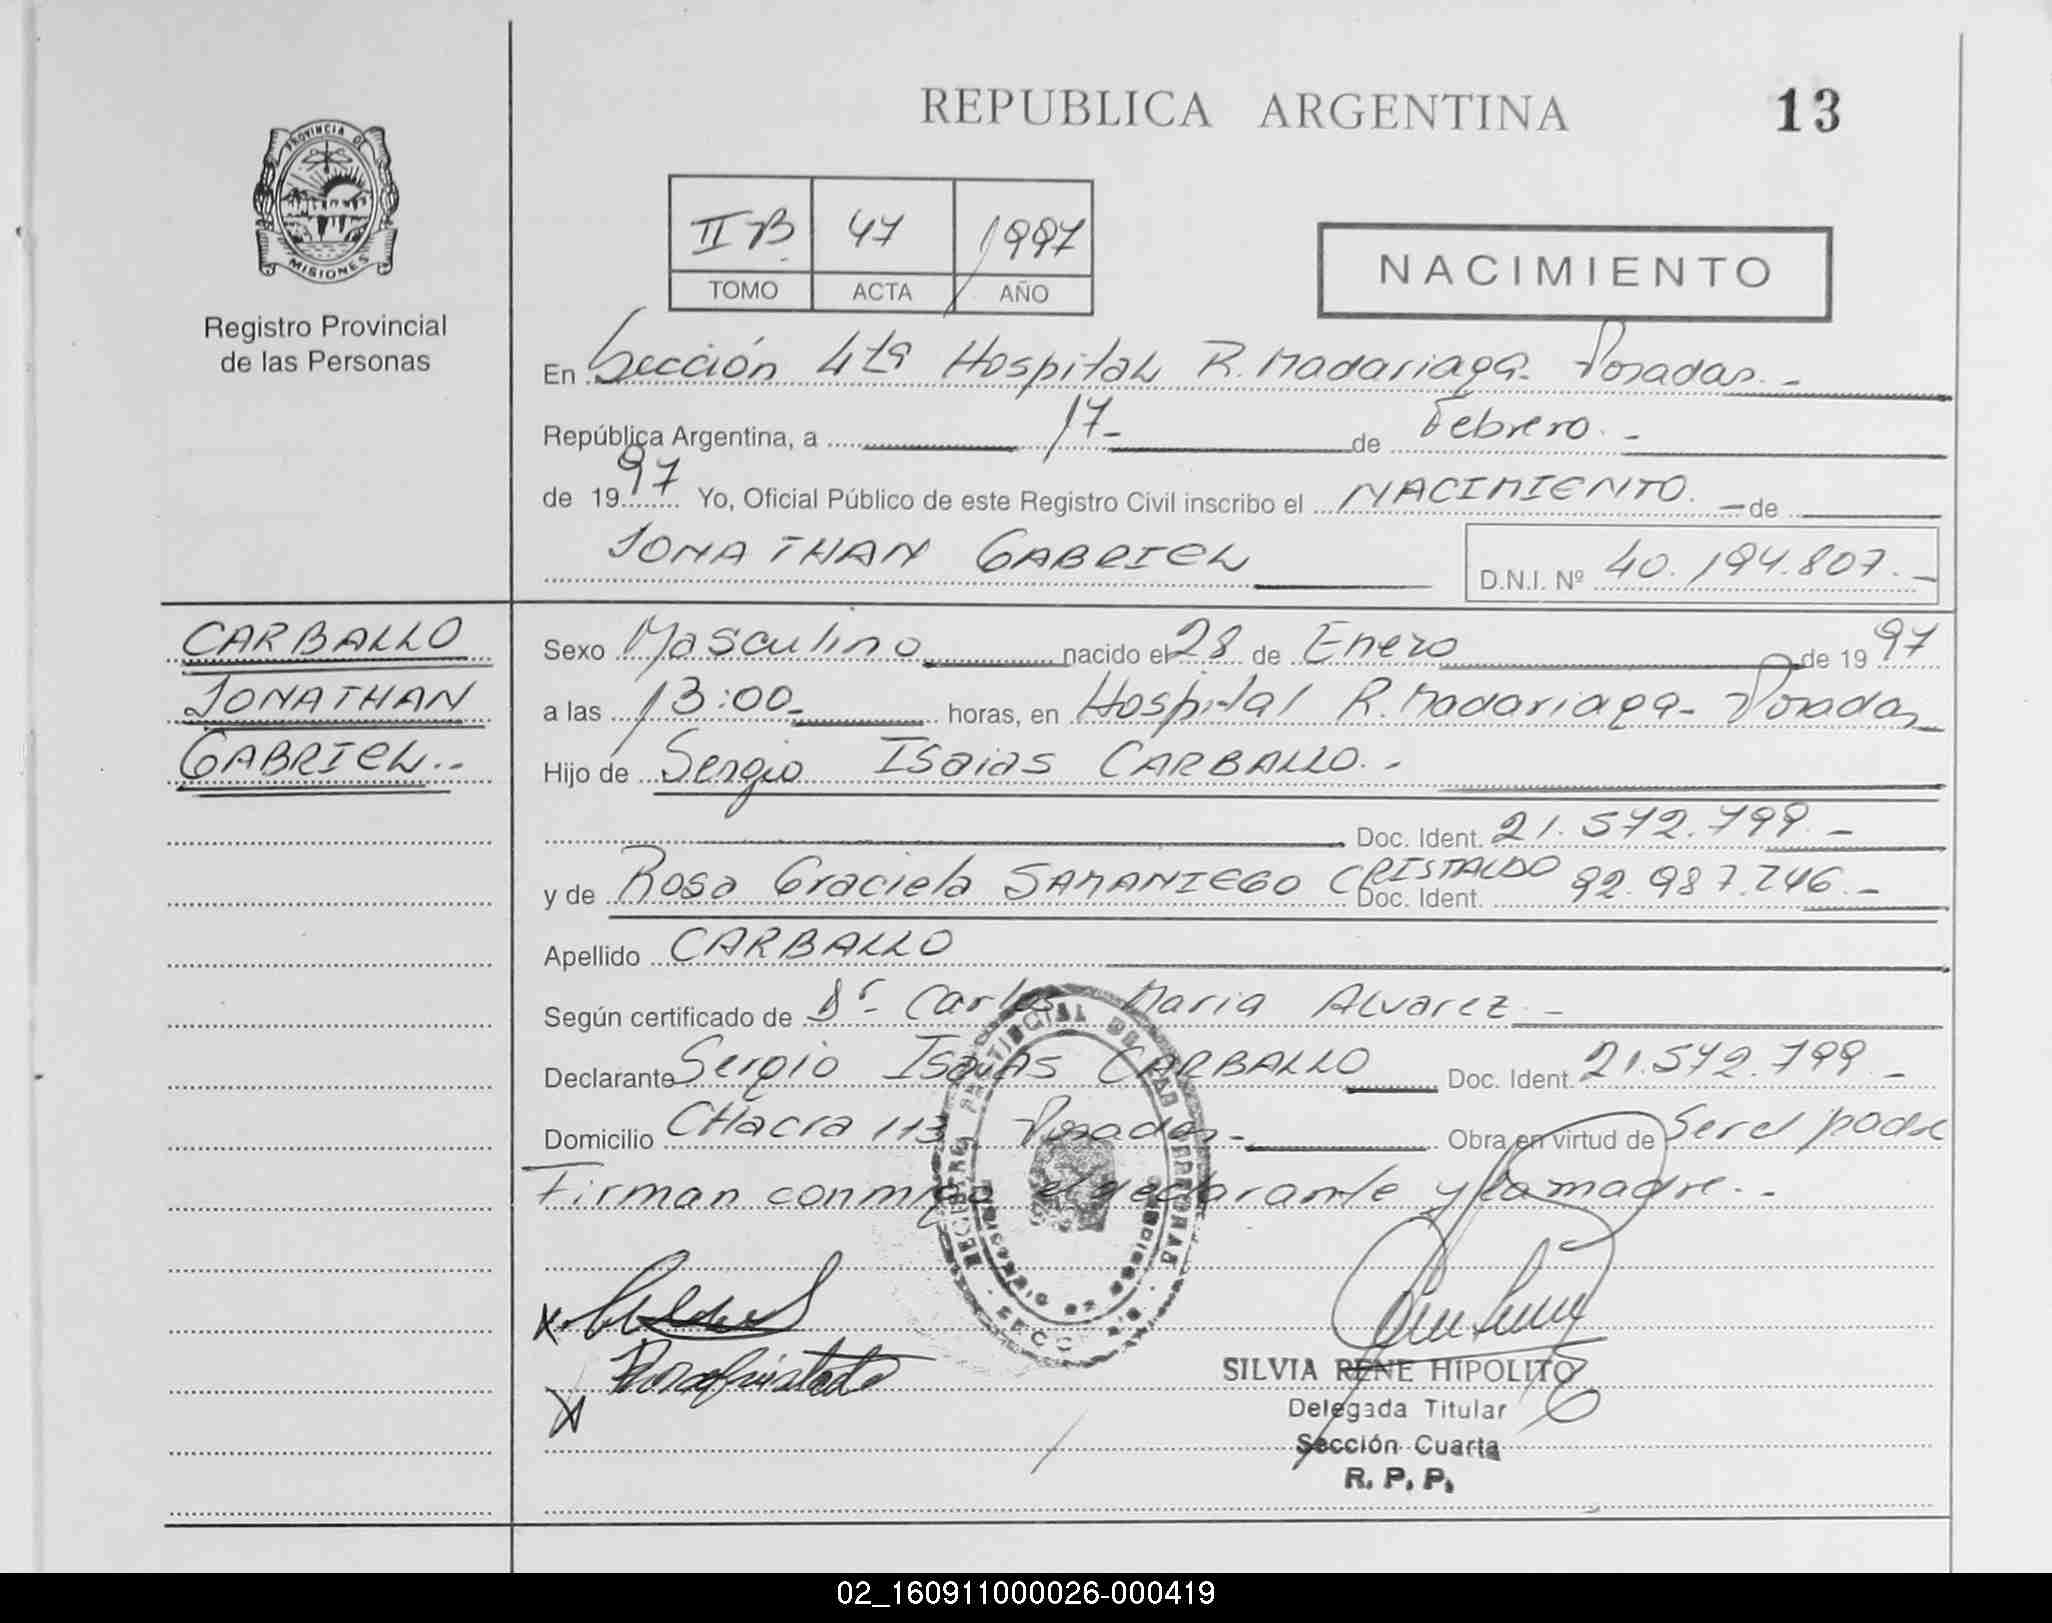 REPUBLICA ARGENTINA 13
PROVINCIA DE
MISIONES
Registro Provincial
de las Personas
II B. 47 1997
TOMO ACTA AÑO
NACIMIENTO
En Sección 4ta Hospital R. Madariaga - Posadas. -
República Argentina, a 17 - de Febrero. -
de 1997 Yo, Oficial Público de este Registro Civil inscribo el NACIMIENTO. - de
JONATHAN GABRIEL D.N.I. Nº 40.194.807. -
CARBALLO
JONATHAN
GABRIEL. -
Sexo Masculino nacido el 28 de Enero de 1997
a las 13:00 - horas, en Hospital R. Madariaga - Posadas
Hijo de Sergio Isaias CARBALLO. -
Doc. Ident. 21.572.799 -
y de Rosa Graciela SAMANIEGO CRISTALDO Doc. Ident. 92.987.746. -
Apellido CARBALLO
Según certificado de Dr. Carlos Maria Alvarez. -
Declarante Sergio Isaias CARBALLO Doc. Ident. 21.572.799. -
Domicilio CHacra 113 Posadas - Obra en virtud de Ser el padre
Firman conmigo el declarante y la madre. -
SILVIA RENE HIPOLITO
Delegada Titular
Sección Cuarta
R. P. P.
02_160911000026-000419